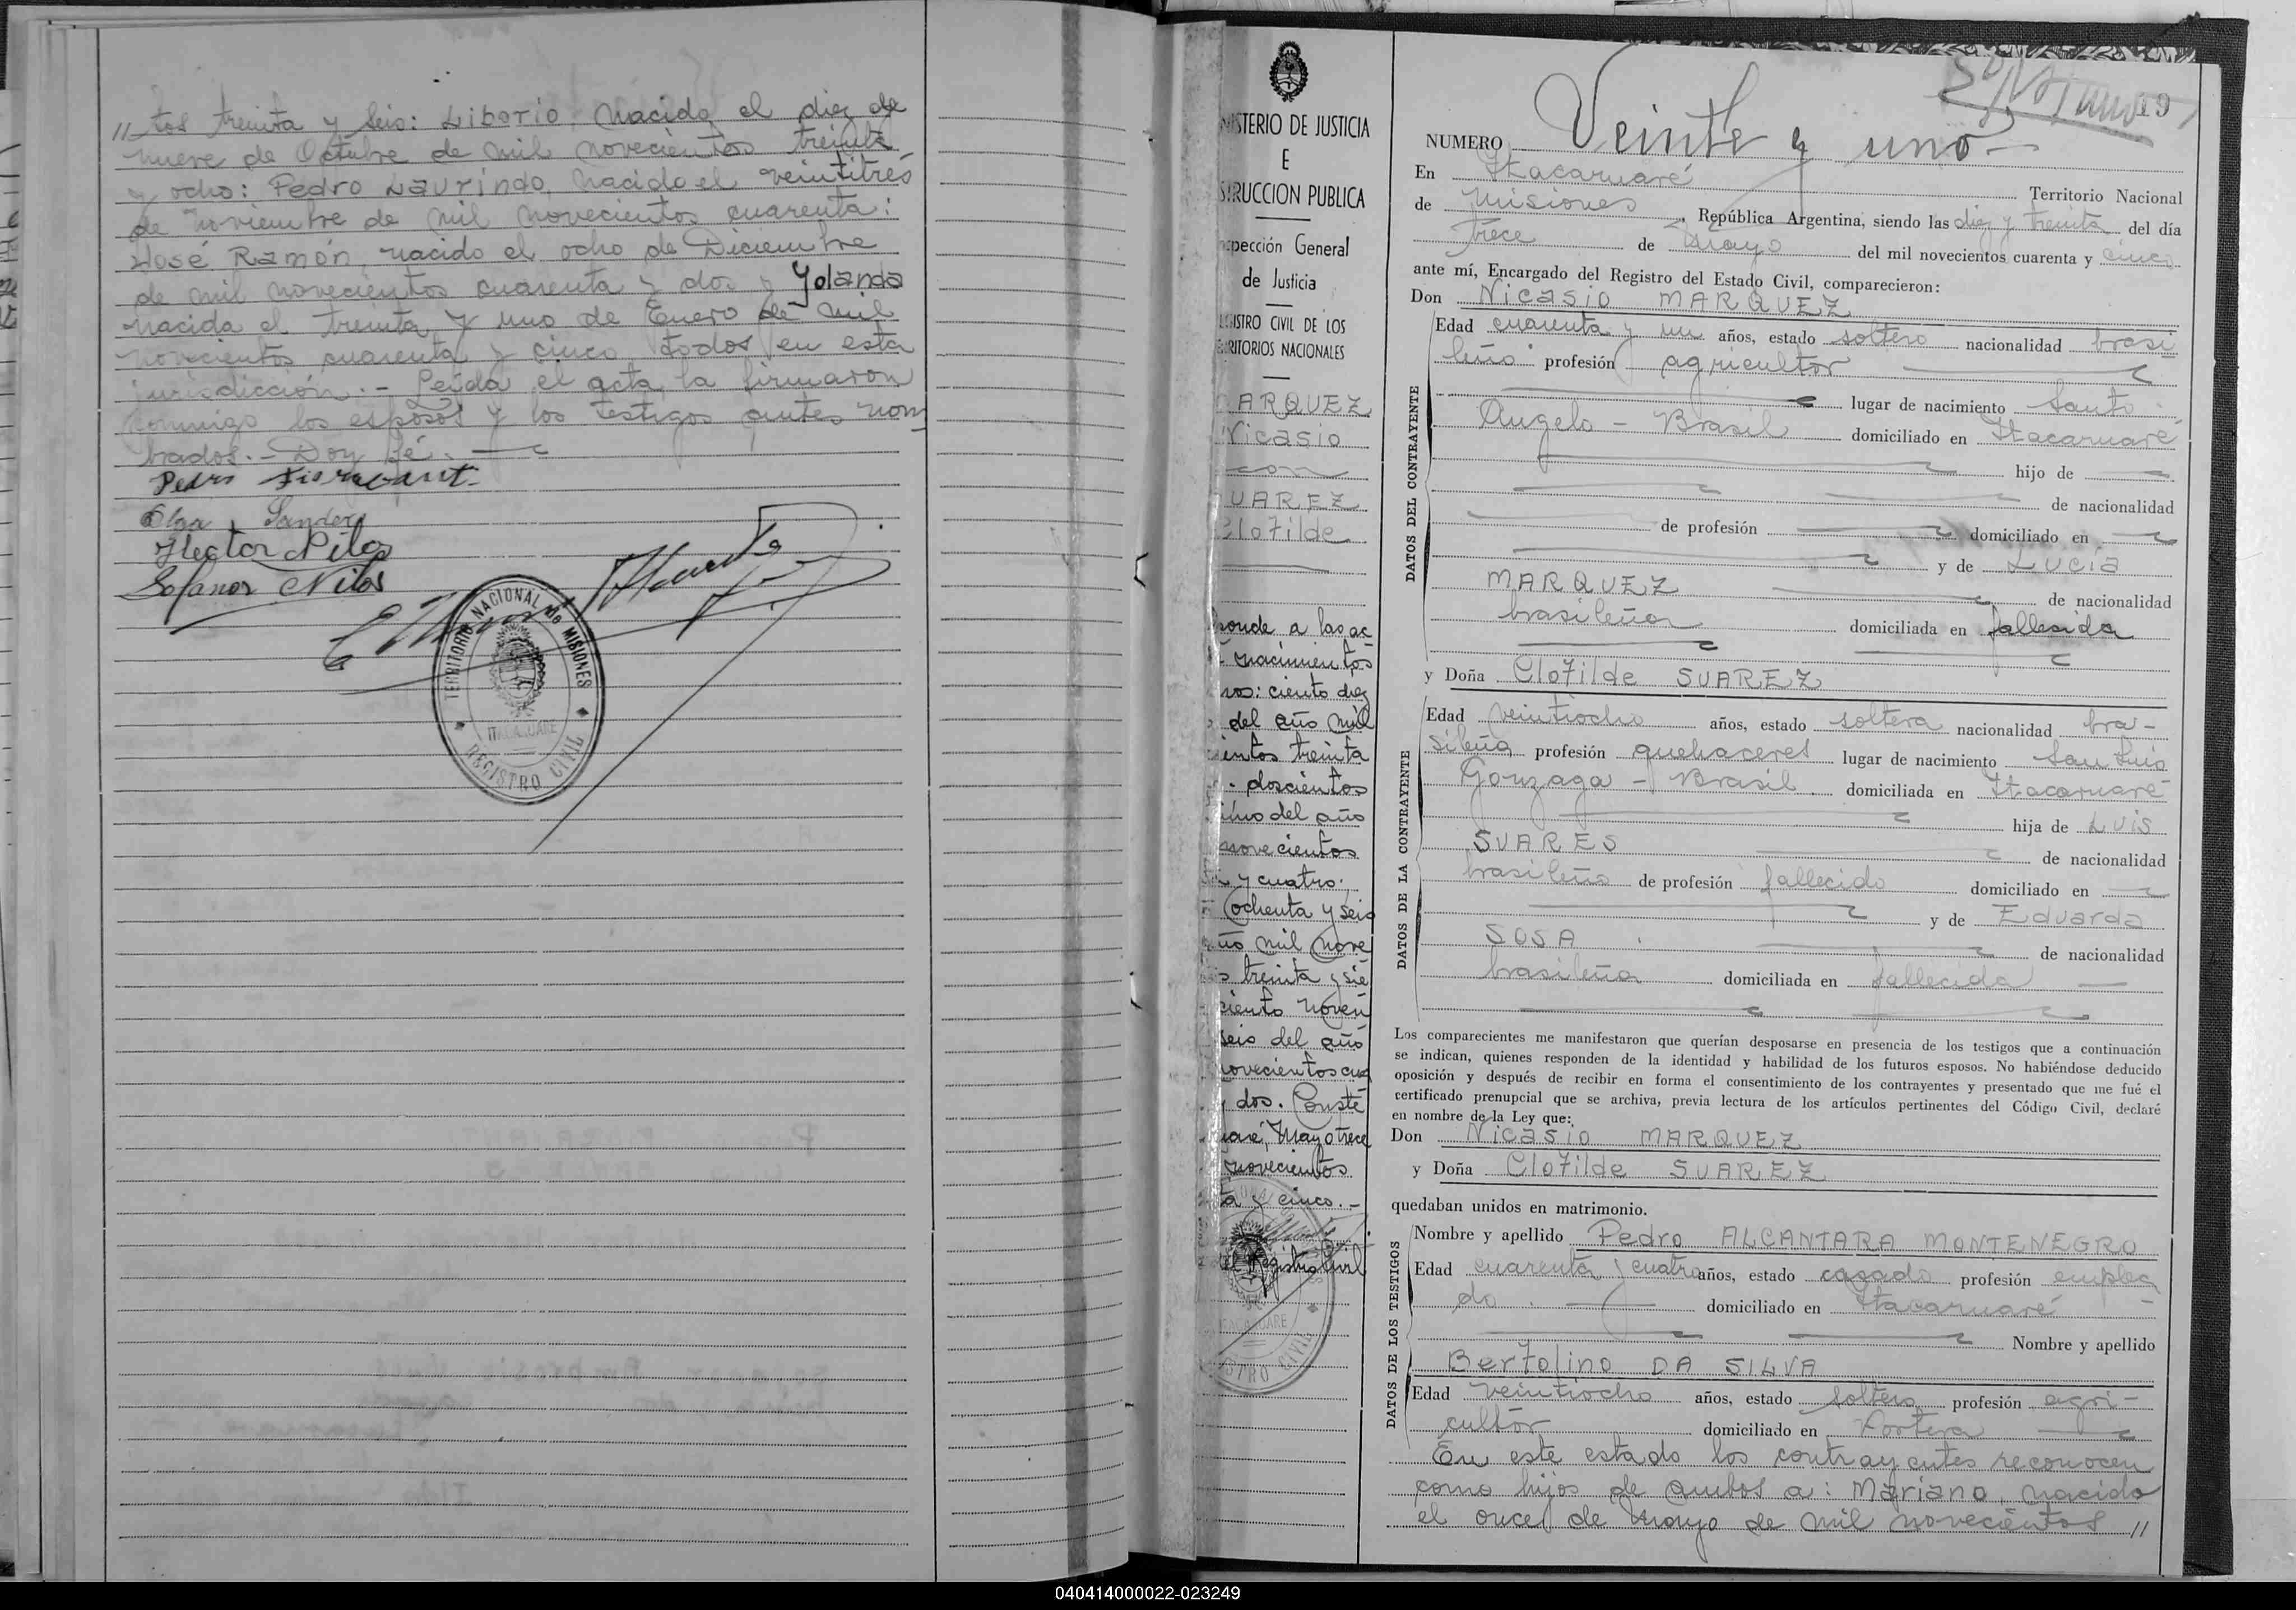 // tos treinta y seis: Liborio, nacido el diez de
nueve de Octubre de mil novecientos treinta
y ocho: Pedro Laurindo, nacido el veintitrés
de noviembre de mil novecientos cuarenta:
José Ramón, nacido el ocho de Diciembre
de mil novecientos cuarenta y dos y Yolanda
nacida el treinta y uno de Enero de mil
novecientos cuarenta y cinco, todos en esta
jurisdicción.- Leída el acta la firmaron
conmigo los esposos y los testigos antes nom
brados.- Doy fé.
Pedro
Olga Sander
Hector Nilos
Solanor Nilos
TERRITORIO NACIONAL de MISIONES
ITACARUARE
REGISTRO CIVIL
NISTERIO DE JUSTICIA
E
STRUCCION PUBLICA
nspección General
de Justicia
EGISTRO CIVIL DE LOS
RRITORIOS NACIONALES
ARQUEZ
Nicasio
con
UAREZ
Clotilde
ponde a las ac
nacimientos
ros: ciento diez
del año mil
cientos treinta
doscientos
uno del año
novecientos
y cuatro;
ochenta y seis
ño mil nove
s treinta y sie
ciento noven
seis del año
novecientos cua
y dos. Conste
uaré, Mayo trece
novecientos
ta y cinco.-
del Registro Civil
ITACARUARE
REGISTRO CIVIL
19
NUMERO Veinte y uno
En Itacaruaré
Territorio Nacional
de Misiones, República Argentina, siendo las diez y treinta del día
trece de Mayo del mil novecientos cuarenta y cinco
ante mí, Encargado del Registro del Estado Civil, comparecieron:
Don Nicasio MARQUEZ
DATOS DEL CONTRAYENTE
Edad cuarenta y un años, estado soltero nacionalidad brasi
leño profesión agricultor
lugar de nacimiento Santo
Angelo - Brasil domiciliado en Itacaruaré
hijo de
de nacionalidad
de profesión domiciliado en
y de Lucía
MARQUEZ de nacionalidad
brasileña domiciliada en fallecida
y Doña Clotilde SUAREZ
DATOS DE LA CONTRAYENTE
Edad veintiocho años, estado soltera nacionalidad bra-
sileña profesión quehaceres lugar de nacimiento San Luis
Gonzaga - Brasil. domiciliada en Itacaruaré
hija de Luis
SUARES de nacionalidad
brasileño de profesión fallecido domiciliado en
y de Eduarda
SOSA de nacionalidad
brasileña domiciliada en fallecida
Los comparecientes me manifestaron que querían desposarse en presencia de los testigos que a continuación
se indican, quienes responden de la identidad y habilidad de los futuros esposos. No habiéndose deducido
oposición y después de recibir en forma el consentimiento de los contrayentes y presentado que me fué el
certificado prenupcial que se archiva, previa lectura de los artículos pertinentes del Código Civil, declaré
en nombre de la Ley que:
Don Nicasio MARQUEZ
y Doña Clotilde SUAREZ
quedaban unidos en matrimonio.
DATOS DE LOS TESTIGOS
Nombre y apellido Pedro ALCANTARA MONTENEGRO
Edad cuarenta y cuatro años, estado casado profesión emplea
do domiciliado en Itacaruaré
Nombre y apellido
Bertolino DA SILVA
Edad veintiocho años, estado soltero profesión agri-
cultor domiciliado en
En este estado los contrayentes reconocen
como hijos de ambos a: Mariano, nacido
el once de Mayo de mil novecientos //
040414000022-023249